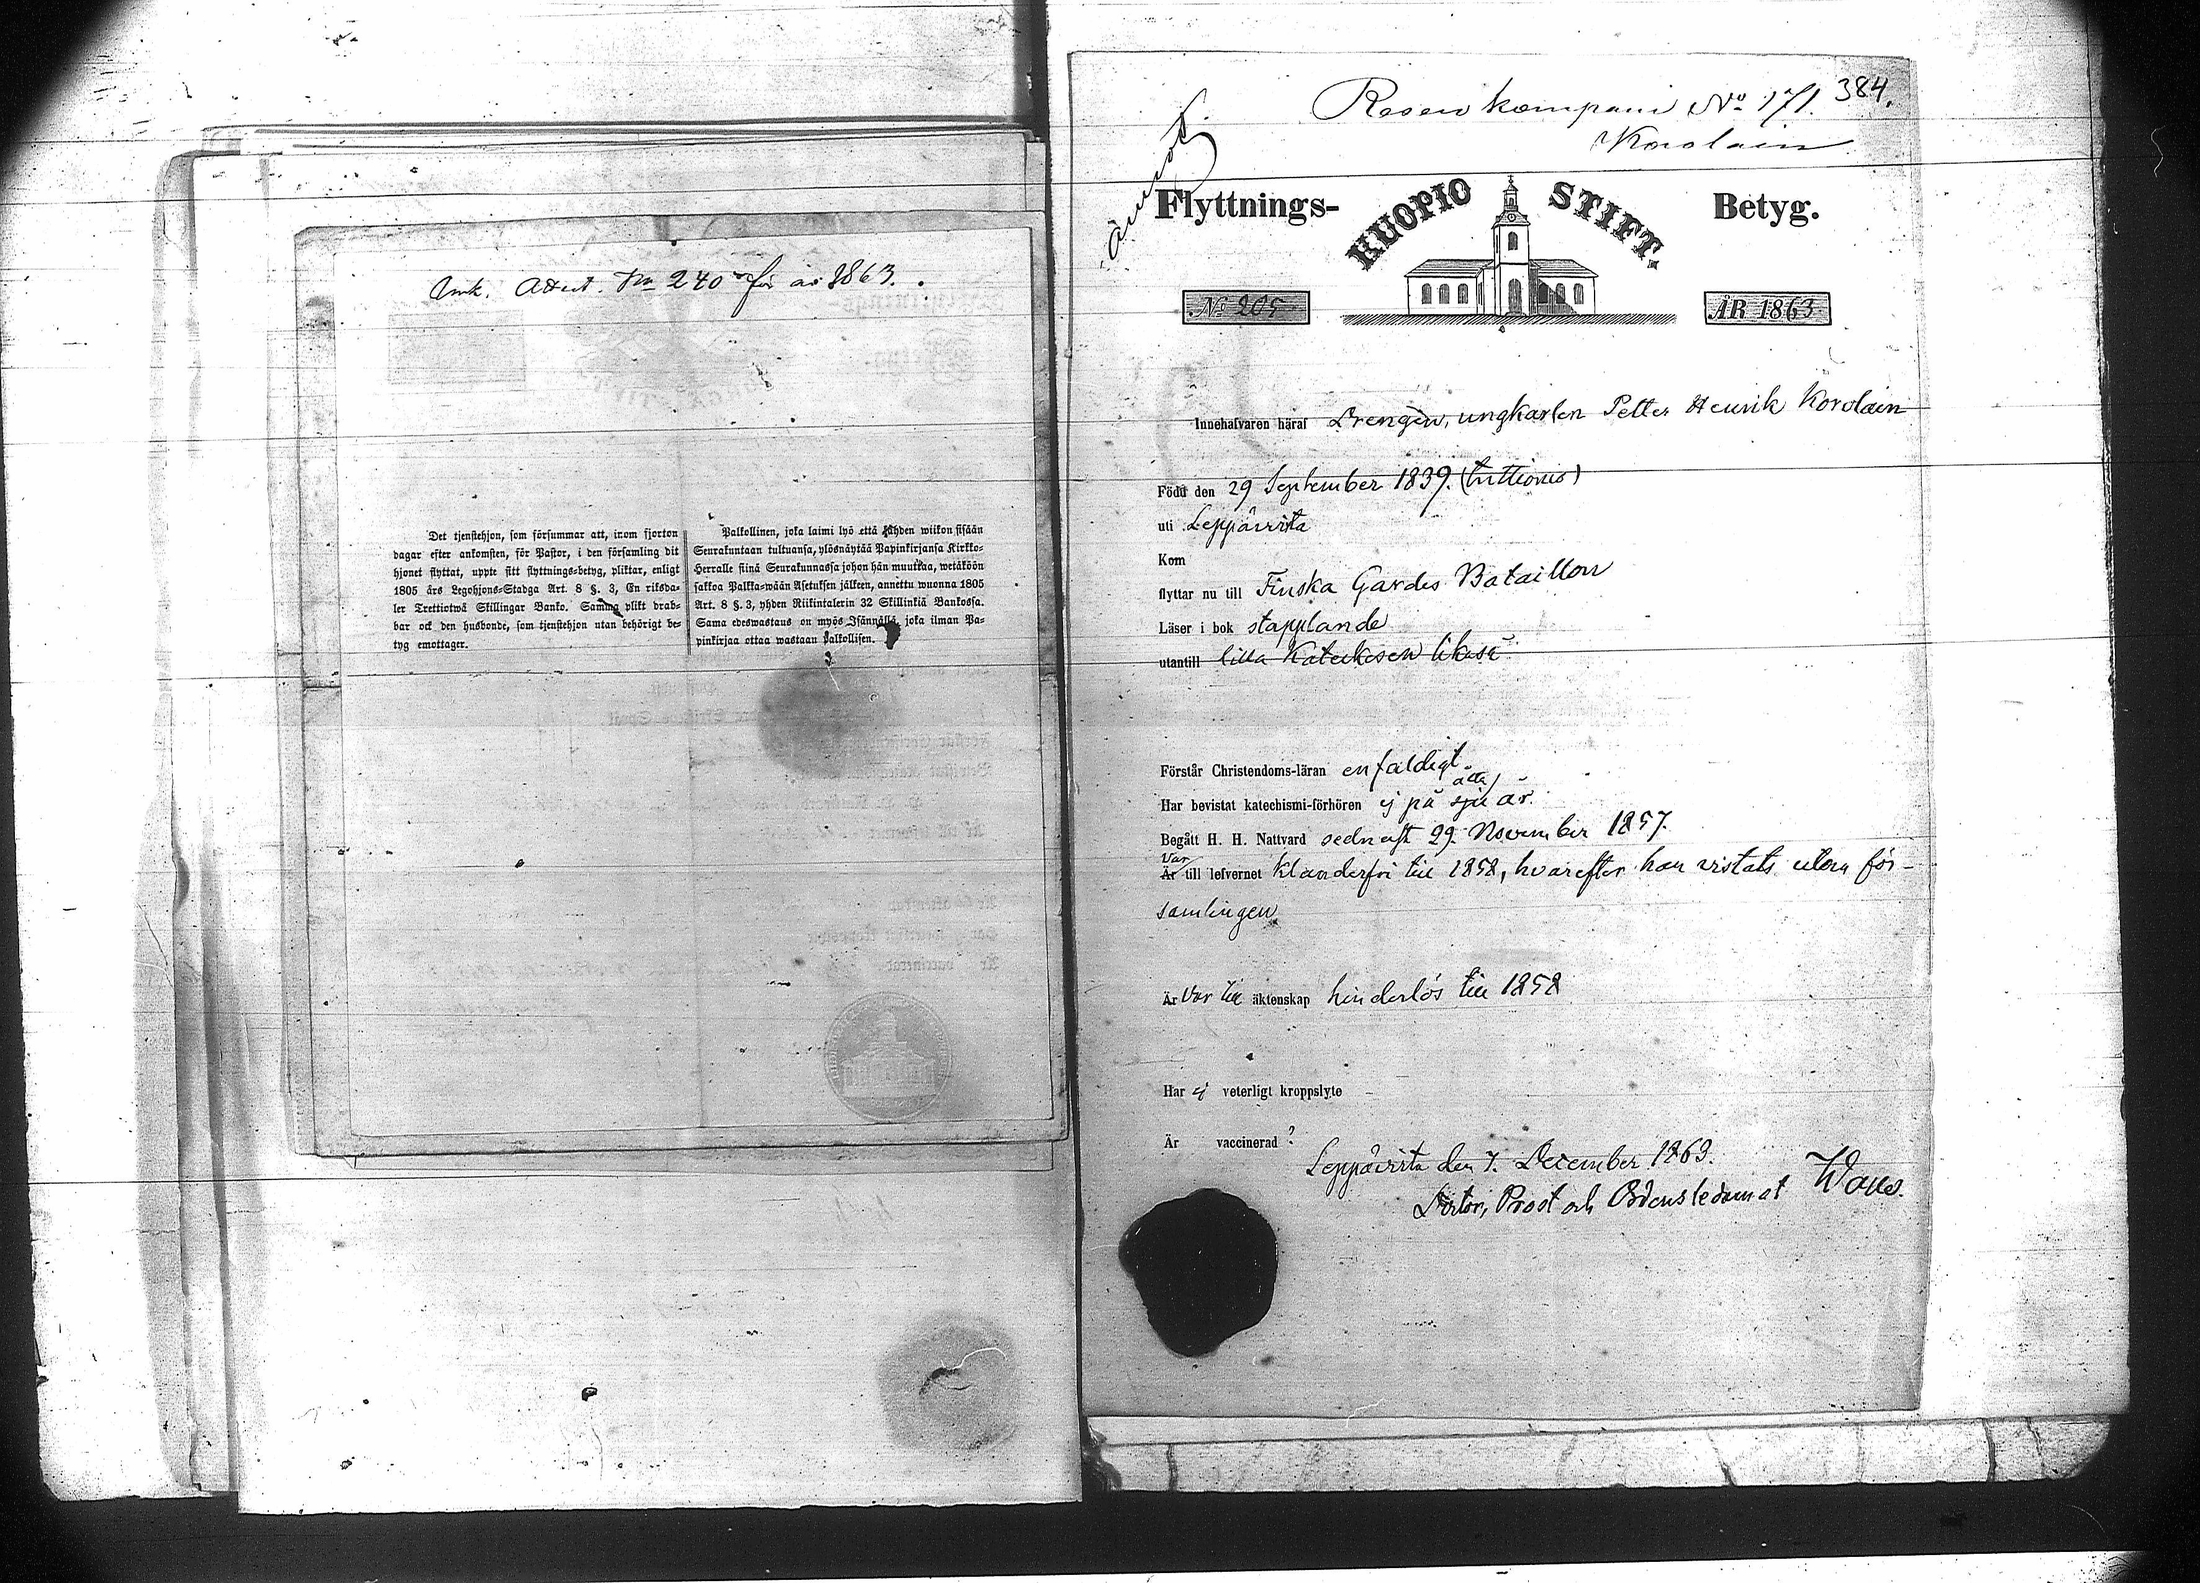 Ank. Attest. No 240 för år 1863.
Det tjenstehjon, som försummar att, inom fjorton
dagar efter ankomsten, för Pastor, i den församling dit
hjonet flyttat, uppte sitt flyttnings-betyg, pliktar, enligt
1805 års Legohjons-Stadga Art. 8 §. 3, En riksda-
ler Trettiotwå Skillingar Banko. Samma plikt drab-
bar ock den husbonde, som tjenstehjon utan behörigt be-
tyg emottager.
Palkollinen, joka laimi lyö että kahden wiikon sisään
Seurakuntaan tultuansa, ylösnäytää Papinkirjansa Kirkko-
Herralle siinä Seurakunnassa johon hän muuttaa, wetäköön
sakkoa Palkka-wään Asetuksen jälkeen, annettu wuonna 1805
Art. 8 §. 3, yhden Riikintalerin 32 Skillinkiä Bankossa.
Sama edeswastaus on myös Isännällä, joka ilman Pa-
pinkirjaa ottaa wastaan Palkollisen.
384.
Reserv kompani No 171.
Korolain
Flyttnings- KUOPIO STIFT. Betyg.
No 205 ÅR 1863
Innehafvaren häraf Drengen, ungkarlen Petter Henrik Korolain
Född den 29 September 1839. (trettionio)
uti Leppävirta
Kom
flyttar nu till Finska Gardes Bataillon
Läser i bok stapplande
utantill lilla Katekesen likaså
Förstår Christendoms-läran enfaldigt.
åtta
Har bevistat katechismi-förhören ej på sju år.
Begått H. H. Nattvard sednast 29 November 1857.
Var
Är till lefvernet klanderfri till 1858, hvarefter han vistats utom för-
samlingen
Är Var till äktenskap hinderlös till 1858
Har ej veterligt kroppslyte -
Är vaccinerad ?
Leppävirta den 7. December 1863.
Doktor, Prost och Ordensledamot